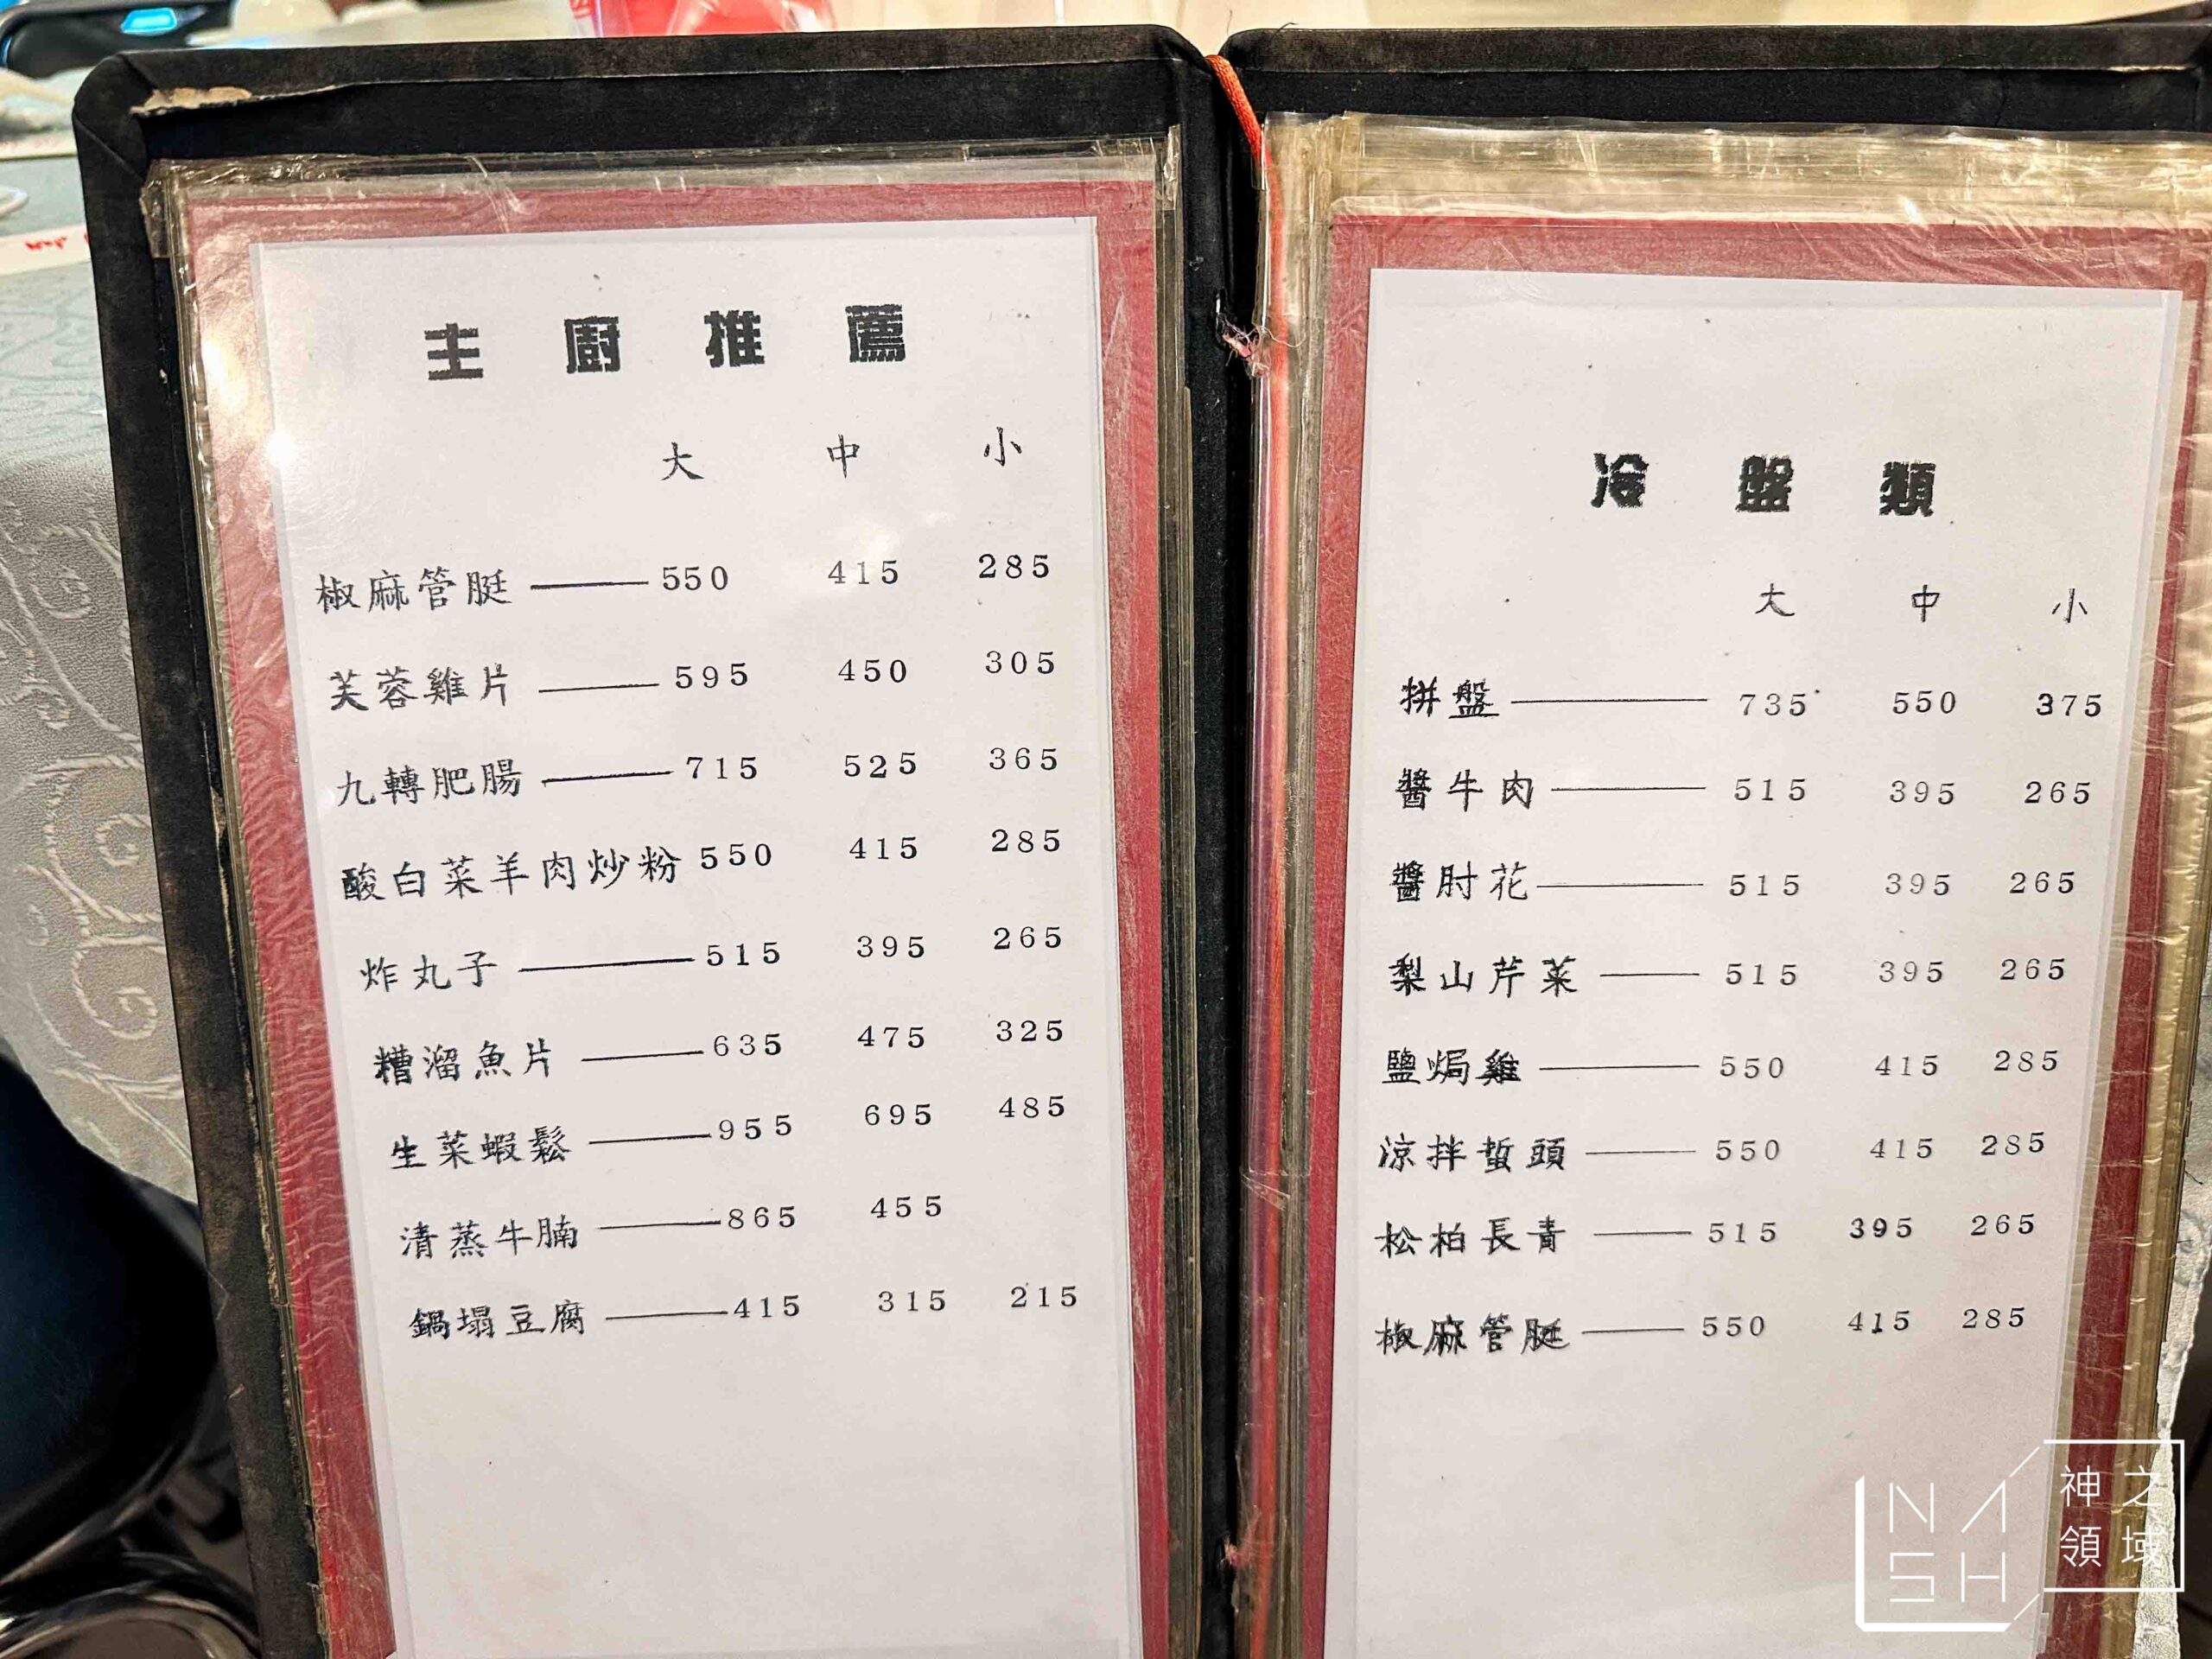 主廚推薦
大 中 小
椒麻管脡 550 415 285
芙蓉雞片 595 450 305
九轉肥腸 715 525 365
酸白菜羊肉炒粉 550 415 285
炸丸子 515 395 265
糟溜魚片 635 475 325
生菜蝦鬆 955 695 485
清蒸牛腩 865 455
鍋塌豆腐 415 315 215
冷盤類
大 中 小
拼盤 735 550 375
醬牛肉 515 395 265
醬肘花 515 395 265
梨山芹菜 515 395 265
鹽焗雞 550 415 285
涼拌蜇頭 550 415 285
松柏長青 515 395 265
椒麻管脡 550 415 285
NASH
神之領域